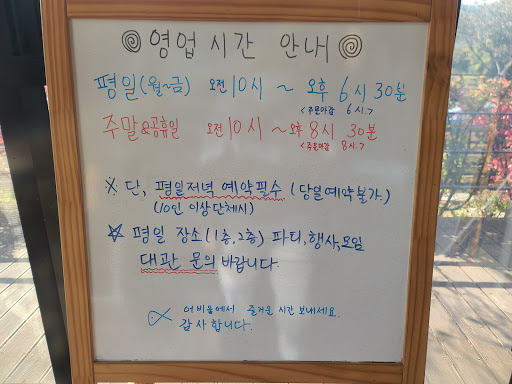 영업시간 안내
평일(월~금) 오전 10시 ~ 오후 6시 30분
<주문마감 6시.>
주말&공휴일 오전 10시 ~ 오후 8시 30분
<주문마감 8시.>
※ 단, 평일저녁 예약필수 (당일예약불가.)
(10인 이상 단체시)
☆ 평일 장소(1층,2층) 파티,행사,모임
대관 문의 바랍니다.
어비움에서 즐거운 시간 보내세요.
감사합니다.